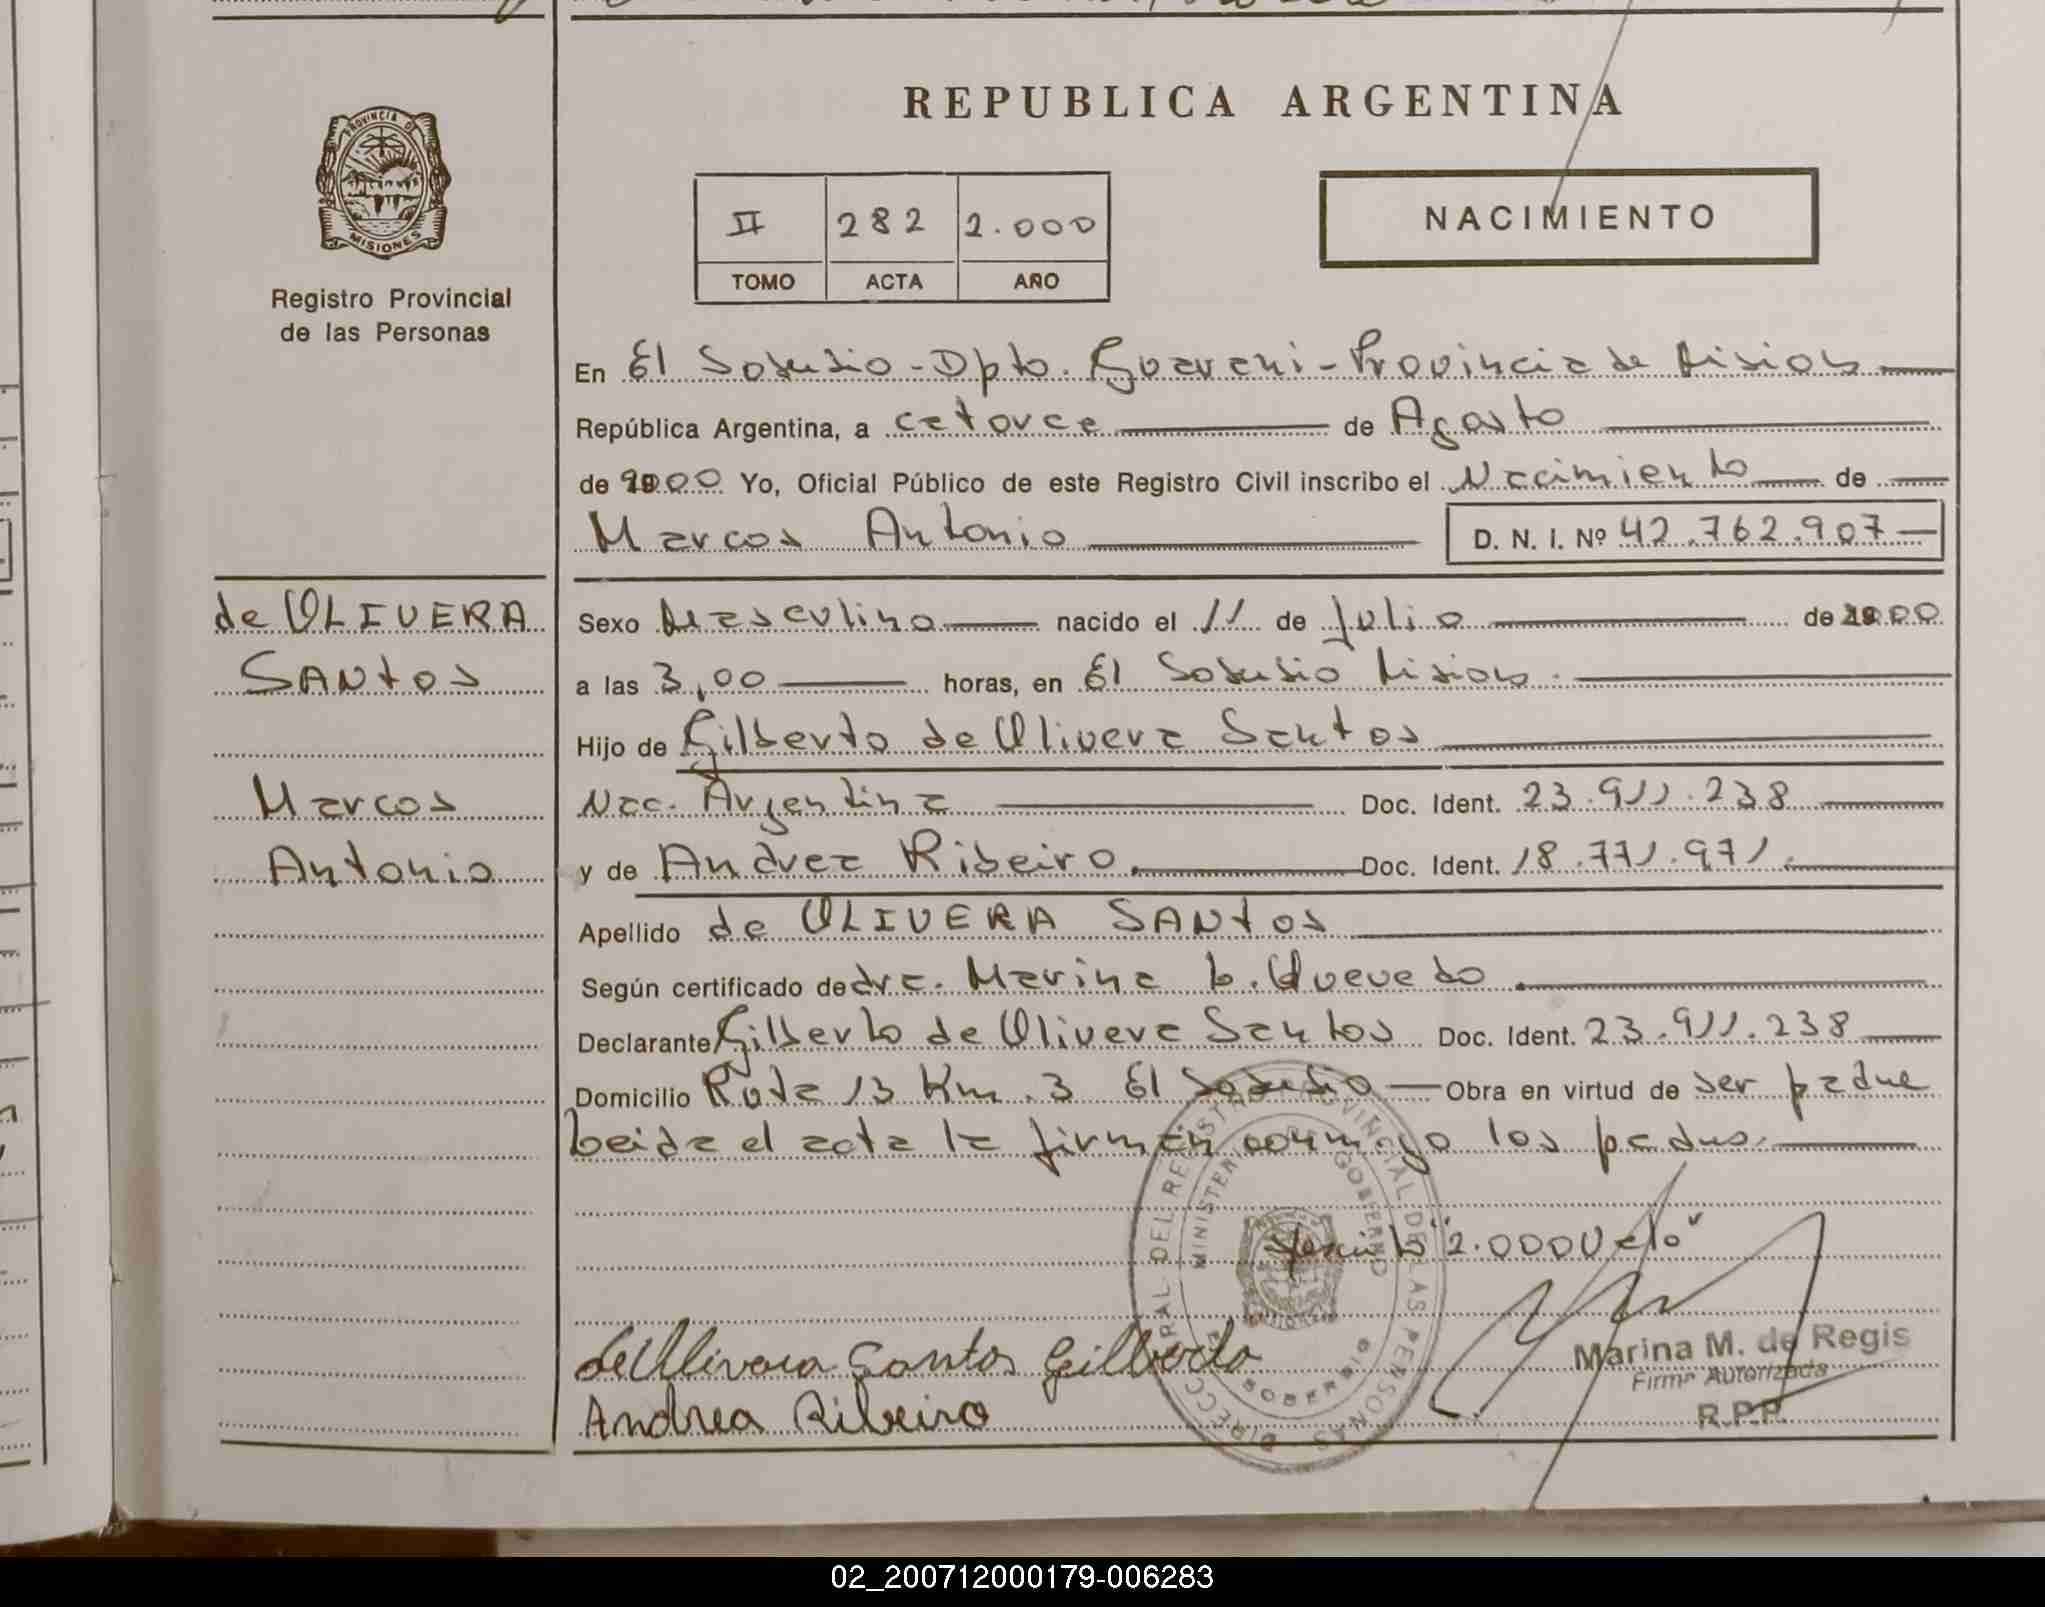 REPUBLICA ARGENTINA
PROVINCIA DE
MISIONES
Registro Provincial
de las Personas
II 282 2.000
TOMO ACTA AÑO
NACIMIENTO
En El Soberbio - Dpto. Guarani - Provincia de Misiones
República Argentina, a catorce de Agosto
de 2000 Yo, Oficial Público de este Registro Civil inscribo el Nacimiento de
Marcos Antonio D. N. I. Nº 42.762.907
de OLIVERA
SANTOS
Marcos
Antonio
Sexo Masculino nacido el 11 de Julio de 2000
a las 3,00 horas, en El Soberbio Misiones.
Hijo de Gilberto de Olivera Santos
Nac. Argentina Doc. Ident. 23.911.238
y de Andrea Ribeiro. Doc. Ident. 18.771.971.
Apellido de OLIVERA SANTOS
Según certificado de dra. Marina L. Quevedo.
Declarante Gilberto de Olivera Santos Doc. Ident. 23.911.238
Domicilio Ruta 13 Km. 3 El Soberbio Obra en virtud de ser padre
Leida el acta la firman conmigo los padres.
"2.000 Vale"
de Olivera Santos Gilberto
Andrea Ribeiro
DIRECC RAL DEL REGISTRO PROVINCIAL DE LAS PERSONAS
MINISTERIO DE GOBIERNO
SOBERBIO
Marina M. de Regis
Firma Autorizada
R.P.P.
02_200712000179-006283